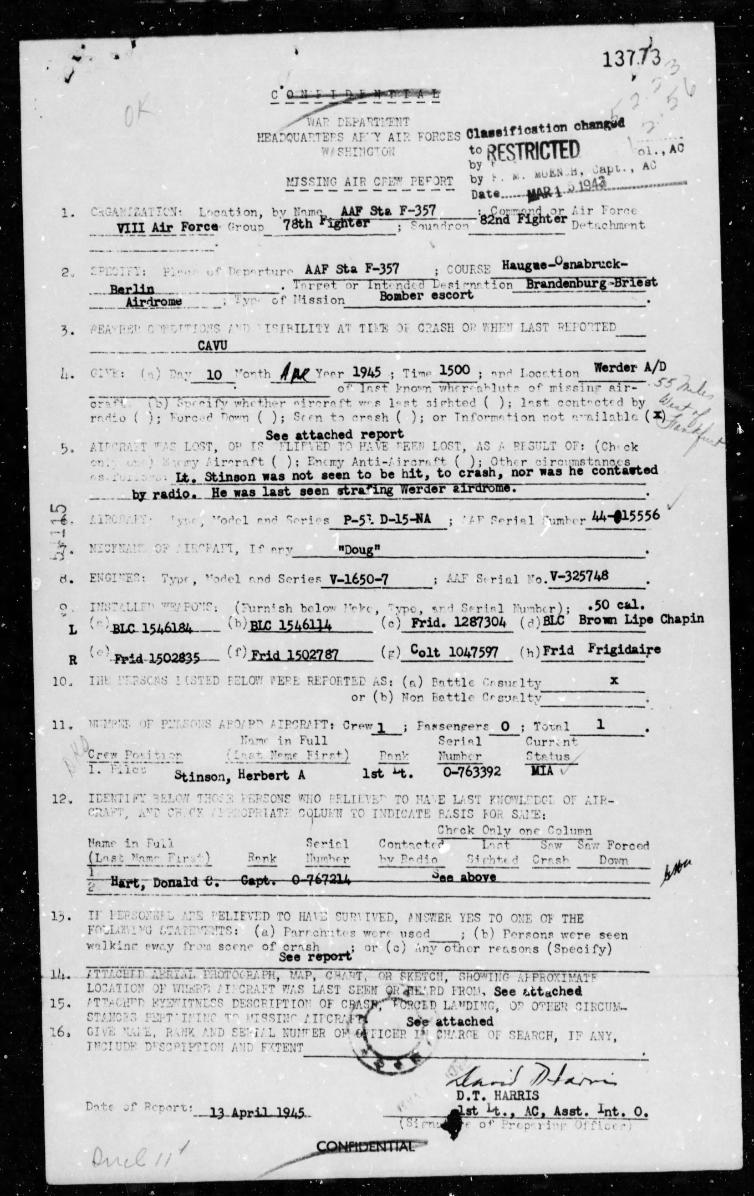 13773
OK
CONFIDENTIAL
WAR DEPARTMENT
HEADQUARTERS ARMY AIR FORCES
WASHINGTON
Classification changed
to RESTRICTED
ol., AC
by
by F. M. MUENCH, Capt., AC
Date MAR 15 1943
MISSING AIR CREW REPORT
1. ORGANIZATION: Location, by Name AAF Sta F-357 ; Command or Air Force
VIII Air Force Group 78th Fighter ; Squadron 82nd Fighter Detachment
2. SPECIFY: Place of Departure AAF Sta F-357 ; COURSE Haugae-Osnabruck-
Berlin . Target or Intended Designation Brandenburg-Briest
Airdrome ; Type of Mission Bomber escort .
3. WEATHER CONDITIONS AND VISIBILITY AT TIME OF CRASH OR WHEN LAST REPORTED
CAVU
4. GIVE: (a) Day 10 Month Apr Year 1945 ; Time 1500 ; and Location Werder A/D
of last known whereabouts of missing air-
craft. (b) Specify whether aircraft was last sighted ( ); last contacted by
radio ( ); Forced Down ( ); Seen to crash ( ); or Information not available (x)
55 miles
West of
See attached report
5. AIRCRAFT WAS LOST, OR IS BELIEVED TO HAVE BEEN LOST, AS A RESULT OF: (Check
only one) Enemy Aircraft ( ); Enemy Anti-Aircraft ( ); Other circumstances
as follows: Lt. Stinson was not seen to be hit, to crash, nor was he contacted
by radio. He was last seen strafing Werder airdrome.
6. AIRCRAFT: Type, Model and Series P-51 D-15-NA ; AAF Serial Number 44-15556
7. NICKNAME OF AIRCRAFT, If any "Doug" .
8. ENGINES: Type, Model and Series V-1650-7 ; AAF Serial No. V-325748 .
9. INSTALLED WEAPONS: (Furnish below Make, Type, and Serial Number); .50 cal.
L (a) BLC 1546184 (b) BLC 1546114 (c) Frid. 1287304 (d) BLC Brown Lipe Chapin
R (e) Frid 1502835 (f) Frid 1502787 (g) Colt 1047597 (h) Frid Frigidaire
10. THE PERSONS LISTED BELOW WERE REPORTED AS: (a) Battle Casualty x
or (b) Non Battle Casualty
11. NUMBER OF PERSONS ABOARD AIRCRAFT: Crew 1 ; Passengers 0 ; Total 1 .
Name in Full Serial Current
Crew Position (Last Name First) Rank Number Status
1. Pilot Stinson, Herbert A 1st Lt. O-763392 MIA
12. IDENTIFY BELOW THOSE PERSONS WHO BELIEVED TO HAVE LAST KNOWLEDGE OF AIR-
CRAFT, AND CHECK APPROPRIATE COLUMN TO INDICATE BASIS FOR SAME:
Check Only one Column
Name in Full Serial Contacted Last Saw Saw Forced
(Last Name First) Rank Number by Radio Sighted Crash Down
1
2 Hart, Donald C. Capt. O-767214 See above
13. IF PERSONNEL ARE BELIEVED TO HAVE SURVIVED, ANSWER YES TO ONE OF THE
FOLLOWING STATEMENTS: (a) Parachutes were used ; (b) Persons were seen
walking away from scene of crash ; or (c) Any other reasons (Specify)
See report
14. ATTACHED AERIAL PHOTOGRAPH, MAP, CHART, OR SKETCH, SHOWING APPROXIMATE
LOCATION OF WHERE AIRCRAFT WAS LAST SEEN OR HEARD FROM. See attached
15. ATTACHED EYEWITNESS DESCRIPTION OF CRASH, FORCED LANDING, OR OTHER CIRCUM-
STANCES PERTAINING TO MISSING AIRCRAFT See attached
16. GIVE NAME, RANK AND SERIAL NUMBER OF OFFICER IN CHARGE OF SEARCH, IF ANY,
INCLUDE DESCRIPTION AND EXTENT .
David D Harris
D.T. HARRIS
Date of Report: 13 April 1945 1st Lt., AC, Asst. Int. O.
(Signature of Preparing Officer)
CONFIDENTIAL